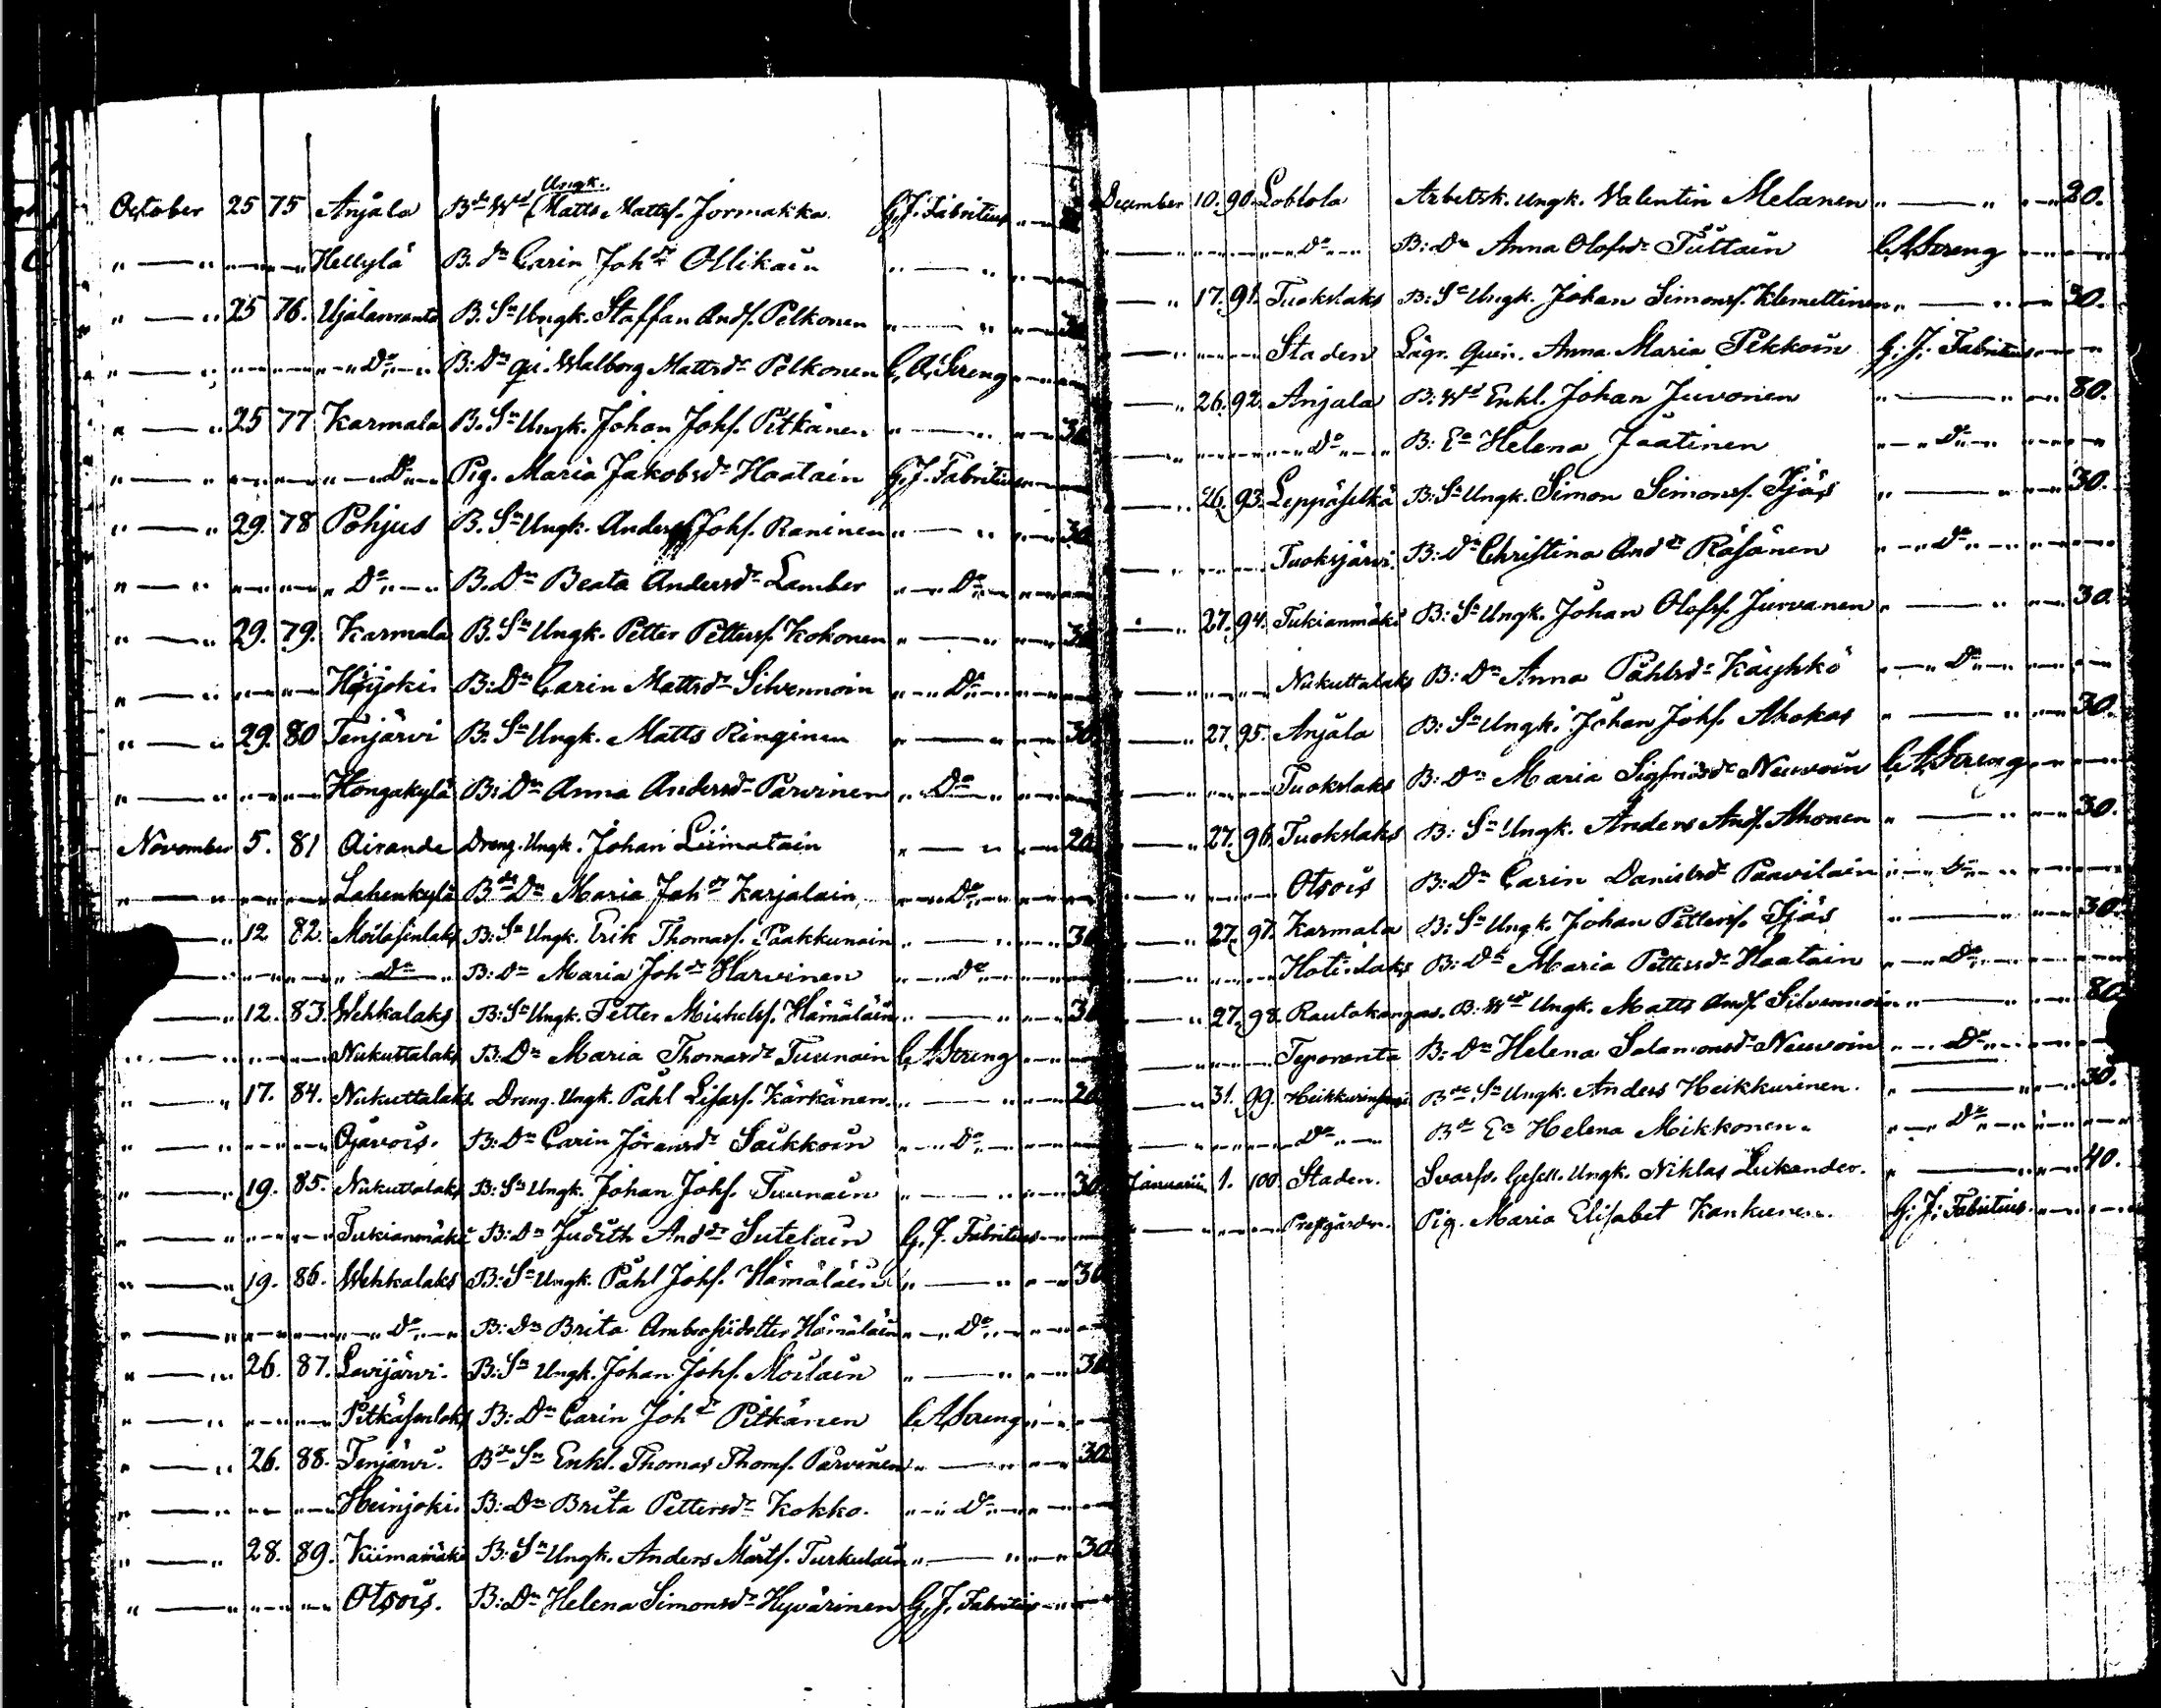 October 25 75 Anjala B:de W:d Ungk. Matts Mattsf. Jormakka G. J. Fabritius „
„ — „ „ „ Hellylä B. Dn Carin Joh:dr Ollikain „ — „
„ — „ 25 76. Ujälanranta B. Sn Ungk. Staffan Andf. Pelkonen „ — „ 30
„ — „ „ „ Do B: Dn qui. Walborg Mattsdr Pelkonen C. A. Streng
„ — „ 25 77 Karmala B. Sn Ungk. Johan Johf. Pitkänen „ — „ 30
„ — „ „ „ Do Pig. Maria Jakobsdr Haatain G. J. Fabritius
„ — „ 29. 78 Pohjus B. Sn Ungk. Anders Johf. Raninen „ — „ 30
„ — „ „ „ Do B. Dn Beata Andersdr Lamber „ Do „
„ — „ 29. 79. Karmala B. Sn Ungk. Petter Pettersf. Kokonen „ — „ 30
„ — „ „ „ Häyjoki. B: Dn Carin Mattsdr Silvennoin „ Do „
„ — „ 29. 80 Tenjärvi B. Sn Ungk. Matts Ringinen „ — „ 30
„ — „ „ „ Hongakylä B: Dn Anna Andersdr Parvinen „ Do „
November 5. 81 Airande Dreng. Ungk. Johan Liimatain „ — „ 20
„ — „ „ „ Lahenkylä Bde Dn Maria Johdr Karjalain „ Do „
— „ 12. 82. Moilasenlaks B: Sn Ungk. Erik Thomasf. Paakkunain „ — „ 30
— „ „ „ Do B: Dn Maria Johdr Harvinen „ Do „
— „ 12. 83. Wehkalaks B: Sn Ungk. Petter Michelsf. Hämäläin „ — „ 30
„ — „ „ „ Nukuttalaks B: Dn Maria Thomasdr Tuunain C. A. Streng
„ — „ 17. 84. Nukuttalaks. Dreng. Ungk. Påhl Lisasf. Kärkänen. „ — „ 20
„ — „ „ „ Ojavois. B: Dn Carin Jöransdr Saikkoin „ Do „
„ — „ 19. 85. Nukuttalaks B: Sn Ungk. Johan Johf. Tuunain „ — „ 30
„ — „ „ „ Tukianmäki B: Dn Judith Anddr Sutelain G. J. Fabritius
„ — „ 19. 86. Wehkalaks B: Sn Ungk. Påhl Johf. Hämäläin „ — „ 30
„ — „ „ „ Do B: Dn Brita Ambrosidotter Hämäläin „ Do „
„ — „ 26. 87. Levijärvi. B: Sn Ungk. Johan Johf. Moilain „ — „ 30
„ — „ „ „ Pitkäsenlaks B: Dn Carin Johdr Pitkänen C. A. Streng
„ — „ 26. 88. Tenjärvi. Bde Sn Enkl. Thomas Thomf. Parvinen „ — „ 30
„ — „ „ „ Heinjoki. B: Dn Brita Pettersdr Kokko. „ Do „
„ — „ 28. 89. Kiimamäki B: Sn Ungk. Anders Martf. Turkulain „ — „ 30
„ — „ „ „ Otsois. B: Dn Helena Simonsdr Hyvärinen G. J. Fabritius
December 10. 90. Loblola Arbetsk. Ungk. Valentin Melanen „ — „ 20.
— „ „ „ Do B: Dn Anna Olofsdr Tuttain C. A. Streng
— „ 17. 91. Tuokslaks B: Sn Ungk. Johan Simonsf. Klemettinen „ — „ 30.
— „ „ „ Staden Lägr. Quin. Anna Maria Pekkoin G. J. Fabritius
— „ 26. 92. Anjala B: Wd Enkl. Johan Juvonen „ — „ 80.
— „ „ „ Do B: Ea Helena Jaatinen „ Do „
— „ 26. 93. Leppäselkä B: Sn Ungk. Simon Simonsf. Ijäs „ — „ 30.
— „ „ „ Tuoksjärvi. B: Dn Christina Anddr Räsänen „ Do „
— „ 27. 94. Tukianmäki B: Sn Ungk. Johan Olofsf. Jurvanen „ — „ 30.
— „ „ „ Nukuttalaks B: Dn Anna Påhlsdr Käyhkö „ Do „
— „ 27. 95. Anjala B: Sn Ungk. Johan Johf. Ahokas „ — „ 30.
— „ „ „ Tuokslaks B: Dn Maria Sigfridsdr Neuvoin C. A. Streng
— „ 27. 96. Tuokslaks B: Sn Ungk. Anders Andf. Ahonen „ — „ 30.
— „ „ „ Otsois B: Dn Carin Danielsdr Paavilain „ Do „
— „ 27. 97. Karmala B: Sn Ungk. Johan Pettersf. Ijäs „ — „ 30.
— „ „ „ Hotinlaks B: Dn Maria Pettersdr Haatain „ Do „
— „ 27. 98. Rautakangas. B: Wd Ungk. Matts Andf. Silvennoin „ — „ 80
— „ „ „ Teporanta B: Dn Helena Salamonsdr Neuvoin „ Do „
— „ 31. 99. Bde Sn Ungk. Anders Heikkurinen. „ — „ 30.
— „ „ „ Do Bde Ea Helena Mikkonen. „ Do „
Januarii 1. 100. Staden. Svarfv. Gesell. Ungk. Niklas Lukander. „ — „ 40.
— „ „ „ Prestgården. Pig. Maria Elisabet Kankunen. G. J. Fabritius.